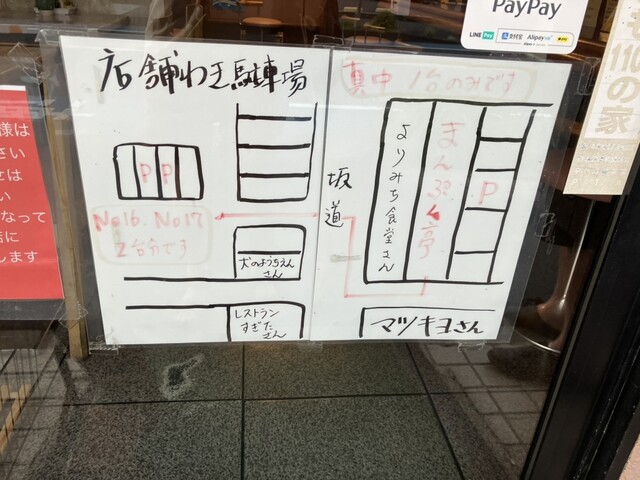 PayPay
LINE Pay 支付宝 Alipay HK
店舗わき駐車場
P P
No16. No17
2台分です
犬のようちえん
さん
レストラン
すぎた
さん
真中 1台のみです
坂道
よりみち食堂さん
まんぷく亭
P
マツキヨさん
様は
さい
は
い
なって
に
します
の家